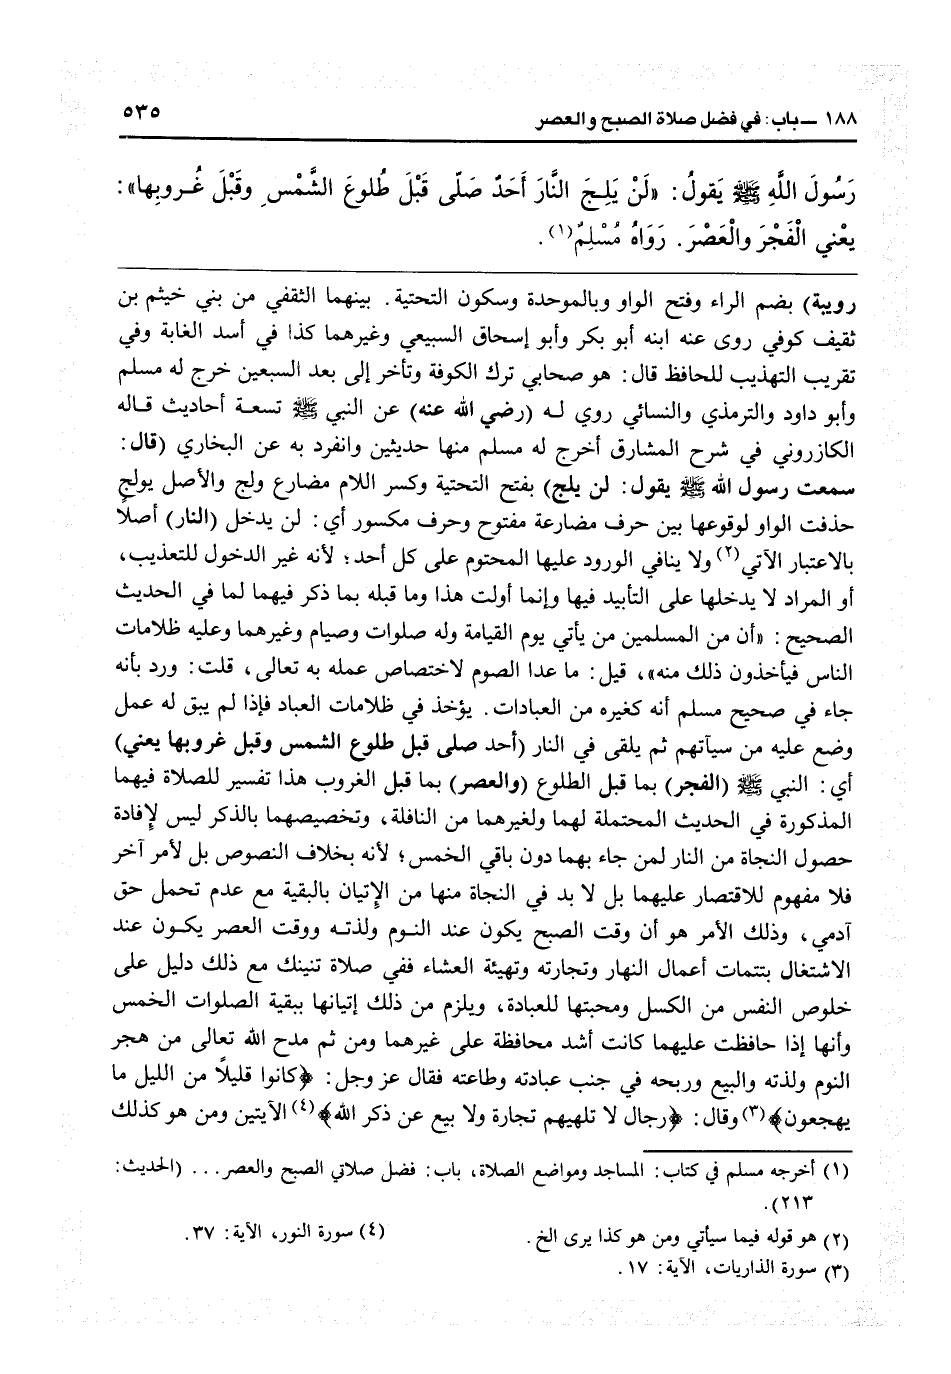 ١٨٨ ـ باب: في فضل صلاة الصبح والعصر ٥٣٥
رَسُولَ اللَّهِ ﷺ يَقولُ: «لَنْ يَلِجَ النَّارَ أَحَدٌ صَلَّى قَبْلَ طُلوعَ الشَّمْسِ وقَبْلَ غُروبِها»:
يعْني الْفَجْرَ والْعَصْرَ. رَوَاهُ مُسْلِمٌ(١).
رويبة) بضم الراء وفتح الواو وبالموحدة وسكون التحتية. بينهما الثقفي من بني خيثم بن
ثقيف كوفي روى عنه ابنه أبو بكر وأبو إسحاق السبيعي وغيرهما كذا في أسد الغابة وفي
تقريب التهذيب للحافظ قال: هو صحابي ترك الكوفة وتأخر إلى بعد السبعين خرج له مسلم
وأبو داود والترمذي والنسائي روي له (رضي الله عنه) عن النبي ﷺ تسعة أحاديث قاله
الكازروني في شرح المشارق أخرج له مسلم منها حديثين وانفرد به عن البخاري (قال:
سمعت رسول الله ﷺ يقول: لن يلج) بفتح التحتية وكسر اللام مضارع ولج والأصل يولج
حذفت الواو لوقوعها بين حرف مضارعة مفتوح وحرف مكسور أي: لن يدخل (النار) أصلاً
بالاعتبار الآتي(٢) ولا ينافي الورود عليها المحتوم على كل أحد؛ لأنه غير الدخول للتعذيب،
أو المراد لا يدخلها على التأبيد فيها وإنما أولت هذا وما قبله بما ذكر فيهما لما في الحديث
الصحيح: «أن من المسلمين من يأتي يوم القيامة وله صلوات وصيام وغيرهما وعليه ظلامات
الناس فيأخذون ذلك منه»، قيل: ما عدا الصوم لاختصاص عمله به تعالى، قلت: ورد بأنه
جاء في صحيح مسلم أنه كغيره من العبادات. يؤخذ في ظلامات العباد فإذا لم يبق له عمل
وضع عليه من سيآتهم ثم يلقى في النار (أحد صلى قبل طلوع الشمس وقبل غروبها يعني)
أي: النبي ﷺ (الفجر) بما قبل الطلوع (والعصر) بما قبل الغروب هذا تفسير للصلاة فيهما
المذكورة في الحديث المحتملة لهما ولغيرهما من النافلة، وتخصيصهما بالذكر ليس لإفادة
حصول النجاة من النار لمن جاء بهما دون باقي الخمس؛ لأنه بخلاف النصوص بل لأمر آخر
فلا مفهوم للاقتصار عليهما بل لا بد في النجاة منها من الإتيان بالبقية مع عدم تحمل حق
آدمي، وذلك الأمر هو أن وقت الصبح يكون عند النوم ولذته ووقت العصر يكون عند
الاشتغال بتتمات أعمال النهار وتجارته وتهيئة العشاء ففي صلاة تنينك مع ذلك دليل على
خلوص النفس من الكسل ومحبتها للعبادة، ويلزم من ذلك إتيانها ببقية الصلوات الخمس
وأنها إذا حافظت عليهما كانت أشد محافظة على غيرهما ومن ثم مدح الله تعالى من هجر
النوم ولذته والبيع وربحه في جنب عبادته وطاعته فقال عز وجل: ﴿كانوا قليلاً من الليل ما
يهجعون﴾(٣) وقال: ﴿رجال لا تلهيهم تجارة ولا بيع عن ذكر الله﴾(٤) الآيتين ومن هو كذلك
(١) أخرجه مسلم في كتاب: المساجد ومواضع الصلاة، باب: فضل صلاتي الصبح والعصر... (الحديث:
٢١٣).
(٢) هو قوله فيما سيأتي ومن هو كذا يرى الخ.
(٤) سورة النور، الآية: ٣٧.
(٣) سورة الذاريات، الآية: ١٧.